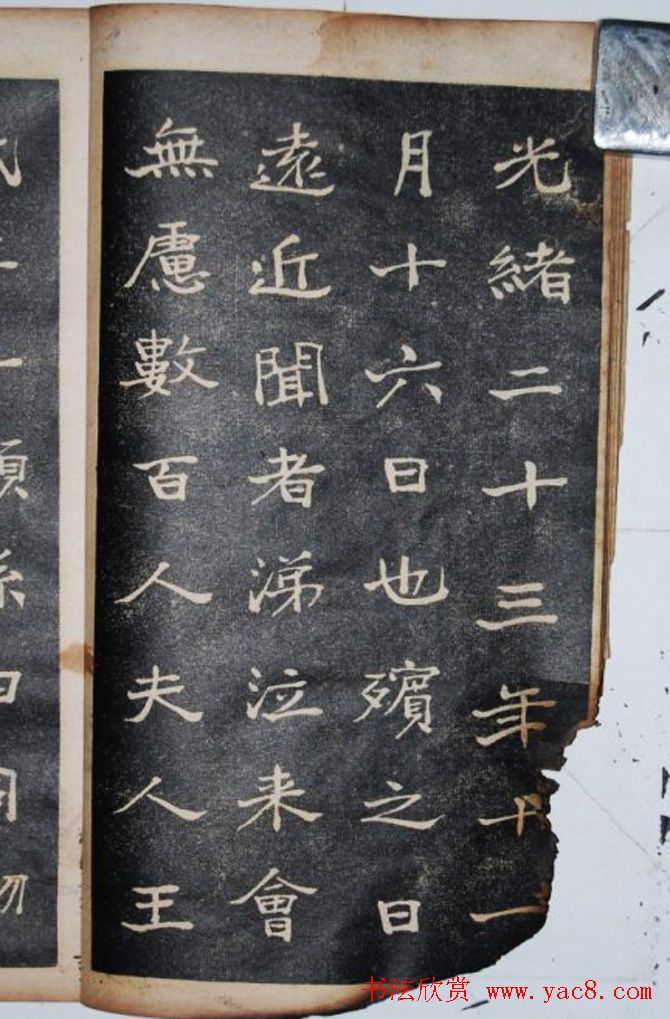 光緒二十三年十一
月十六日也殯之日
遠近聞者涕泣来會
無慮數百人夫人王
书法欣赏 www.yac8.com